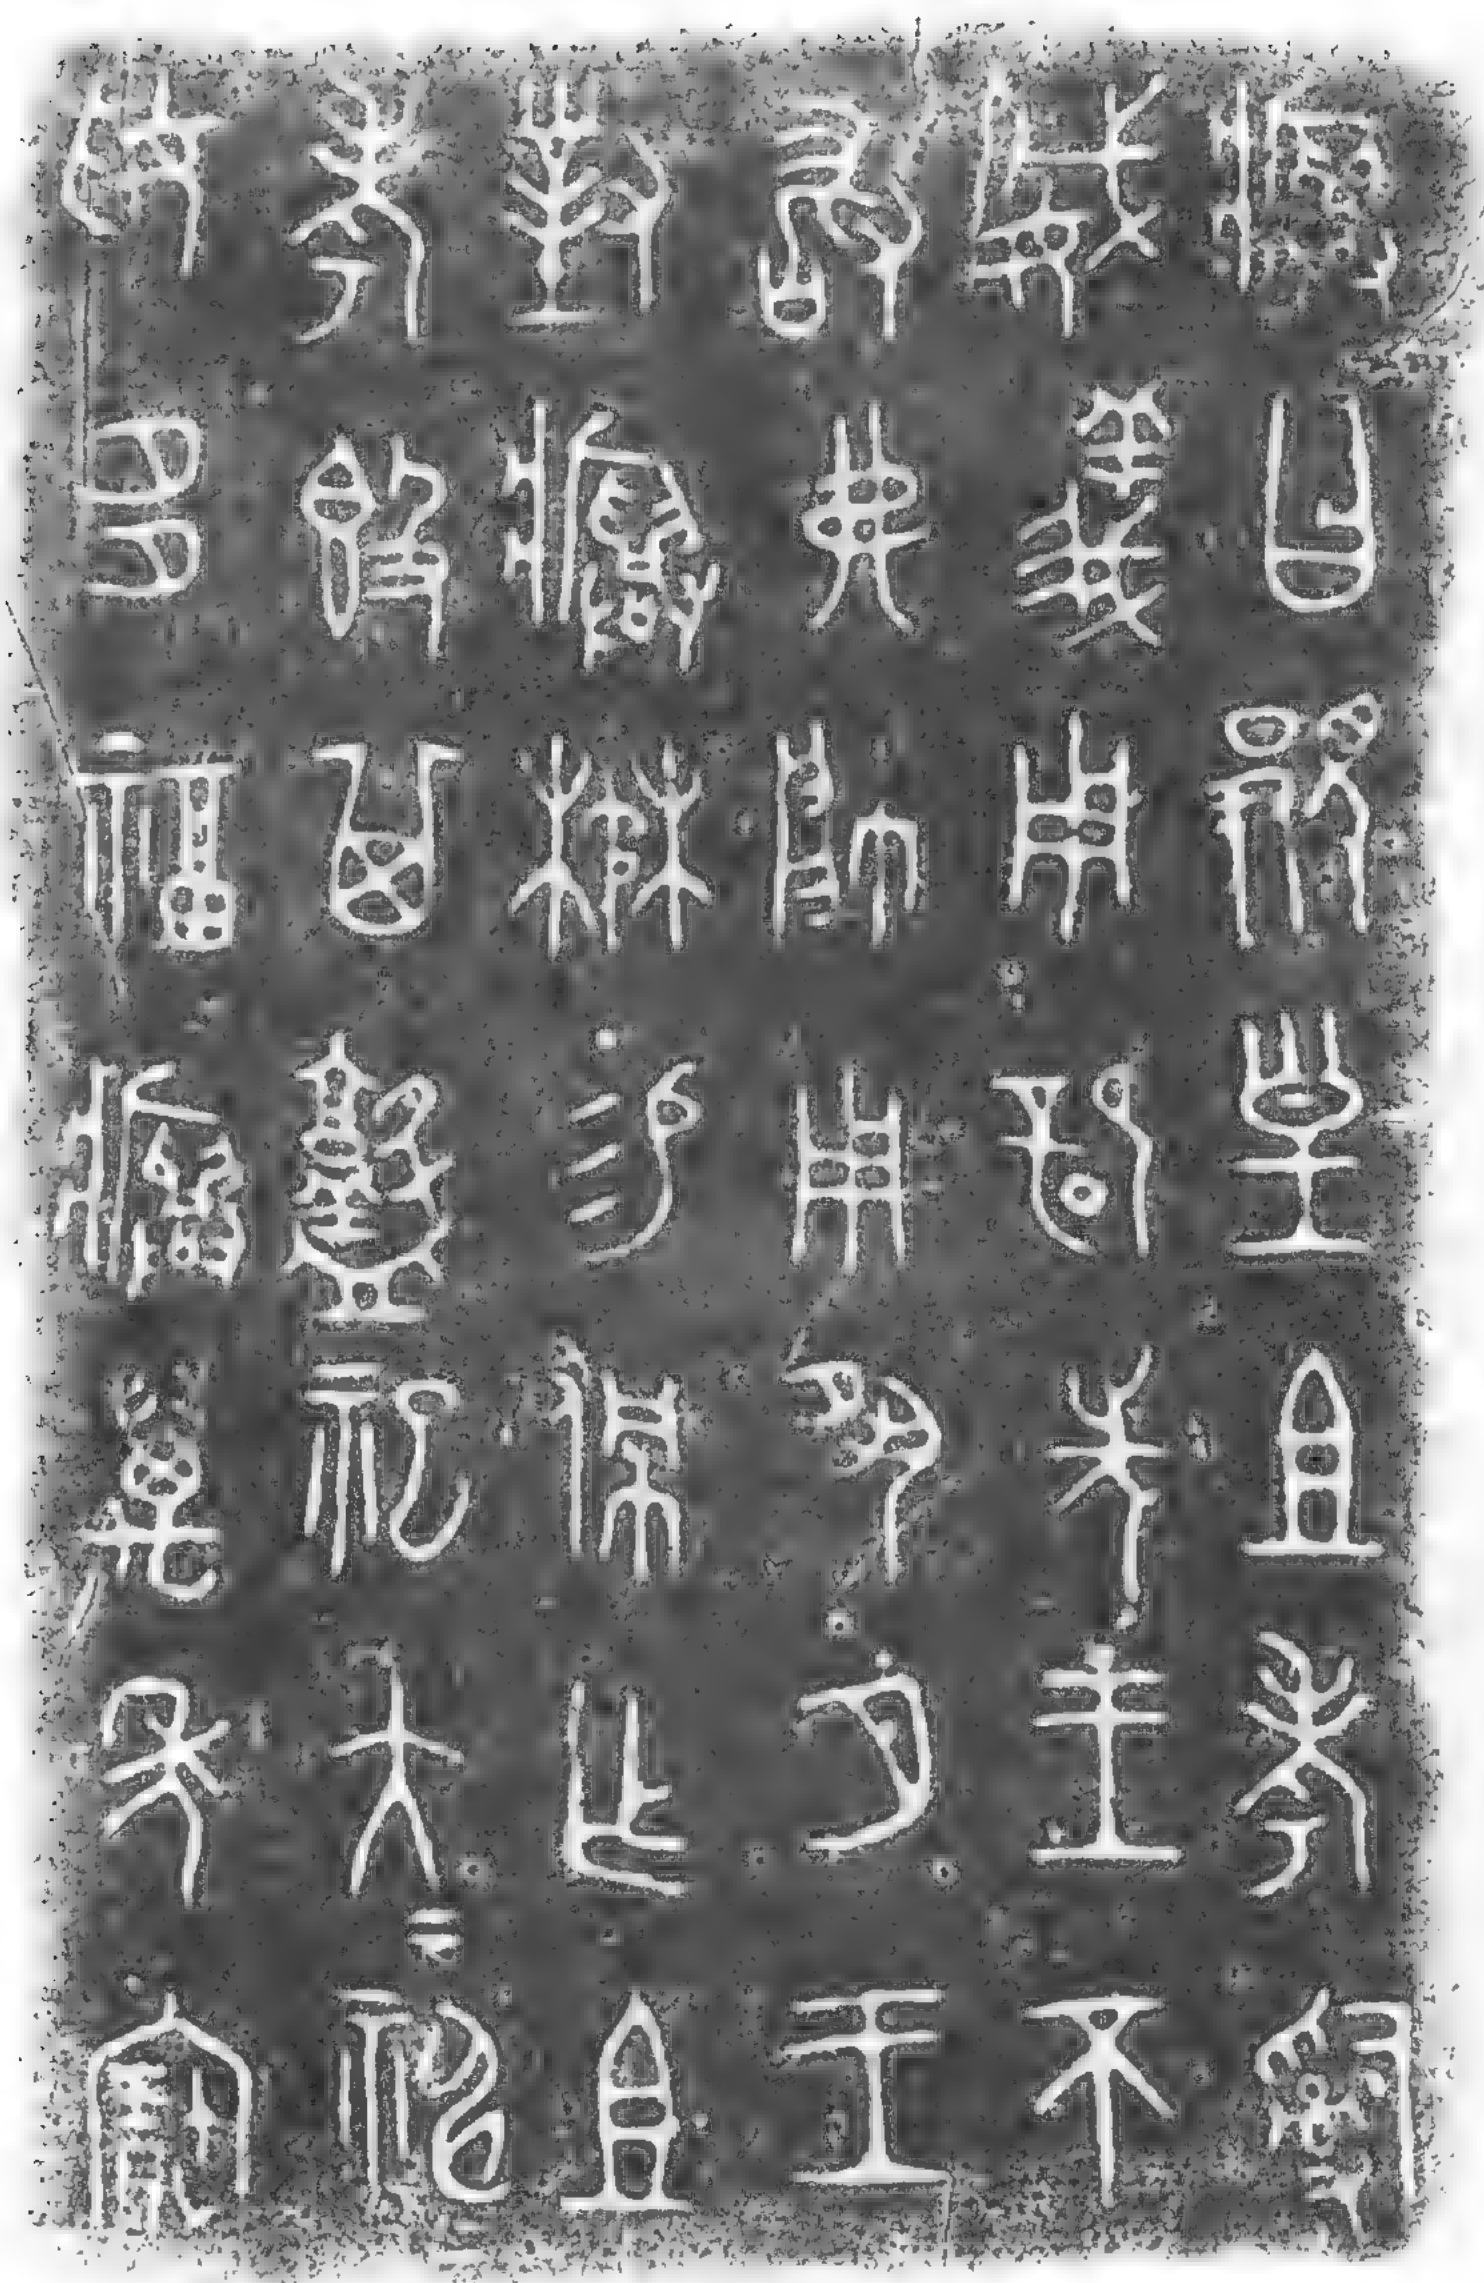 㾓曰䚄皇且考𤔲
威義用辟先王不
敢弗帥用夙夕王
對㾓楙易佩乍且
考𣪘其𢍰祀大神=
妥多福㾓萬年寶